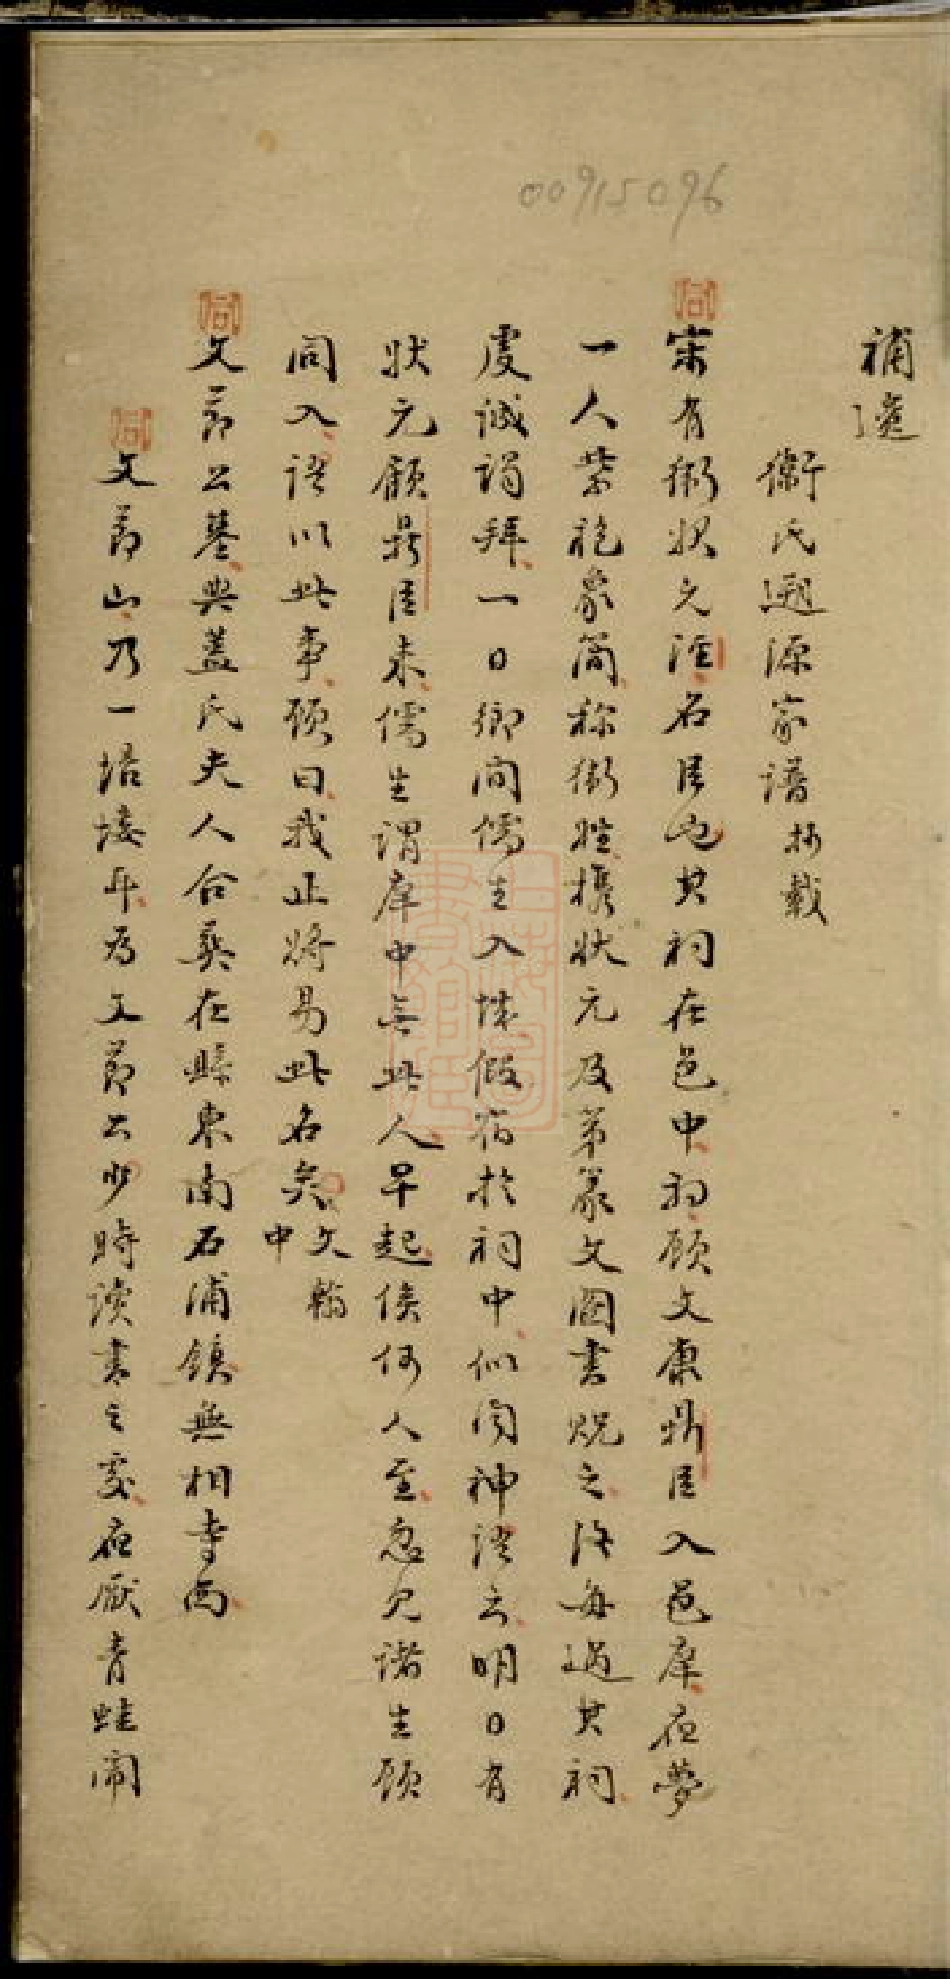 00915096
補遺
衛氏遡源家譜折載
宋有衛狀元涇名臣也其祠在邑中初顾文康鼎臣入邑庠夜夢
一人紫袍象簡称衛姓携狀元及第篆文圖書貺之後每過其祠
虔誠謁拜一日鄉間儒生入城假宿於祠中似聞神語云明日有
狀元顧鼎臣来儒生謂庠中無此人早起俟何人至忽見諸生顾
同入語以此事顾曰我止将易此名矣
文翰
中
文莭公墓與蓋氏夫人合葬在縣東南石浦鎮無相寺西
文莭山乃一培塿耳为文莭公少時读書之處夜厭青蛙鬧